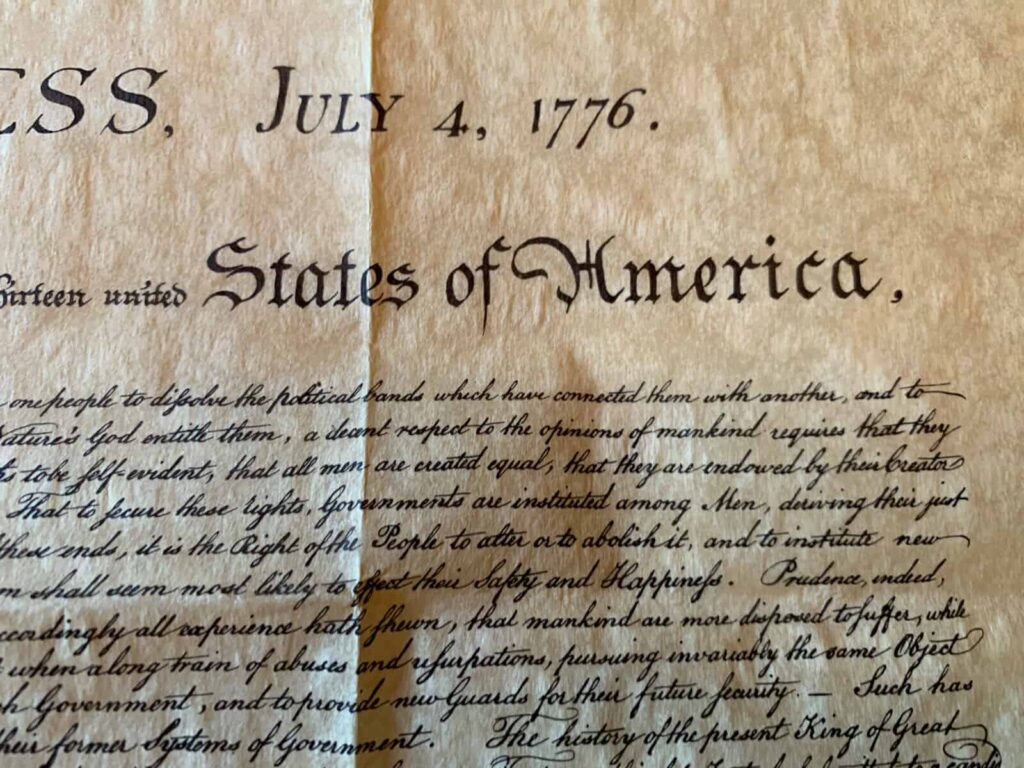 ESS, JULY 4, 1776.
hirteen united States of America,
one people to diſsolve the political bands which have connected them with another, and to
Nature's God entitle them, a decent respect to the opinions of mankind requires that they
to be ſelf-evident, that all men are created equal, that they are endowed by their Creator
That to ſecure these rights, Governments are instituted among Men, deriving their just
these ends, it is the Right of the People to alter or to abolish it, and to institute new
m shall seem most likely to effect their Safety and Happineſs. Prudence, indeed,
ccordingly all experience hath ſhewn, that mankind are more disposed to ſuffer, while
when a long train of abuses and uſurpations, pursuing invariably the same Object
h Government, and to provide new Guards for their future ſecurity. — Such has
heir former Systems of Government. The history of the present King of Great